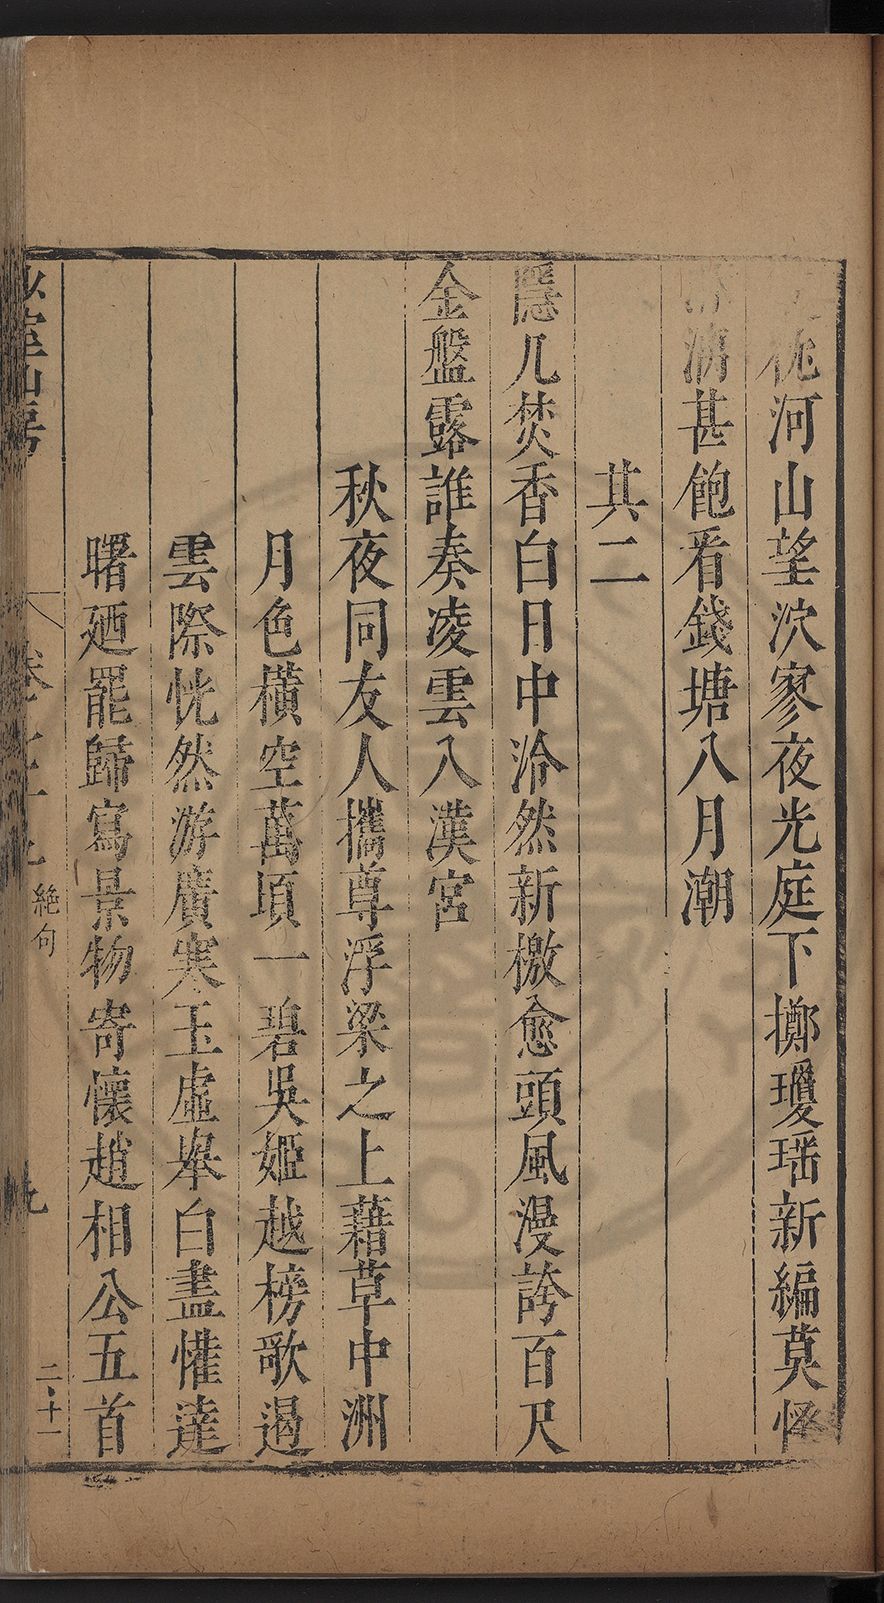 桃河山望泬寥夜光庭下擲瓊瑶新編莫怪
淋漓甚飽看錢塘八月潮
其二
隱几焚香白日中泠然新檄愈頭風漫誇百尺
金盤露誰奏凌雲入漢宮
秋夜同友人攜尊浮梁之上藉草中洲
月色橫空萬頃一碧吳姬越榜歌遏
雲際恍然游廣寒玉虛舉白盡懽達
曙廼罷歸寫景物寄懷趙相公五首
少室山房
卷之
絕句
九
二十一